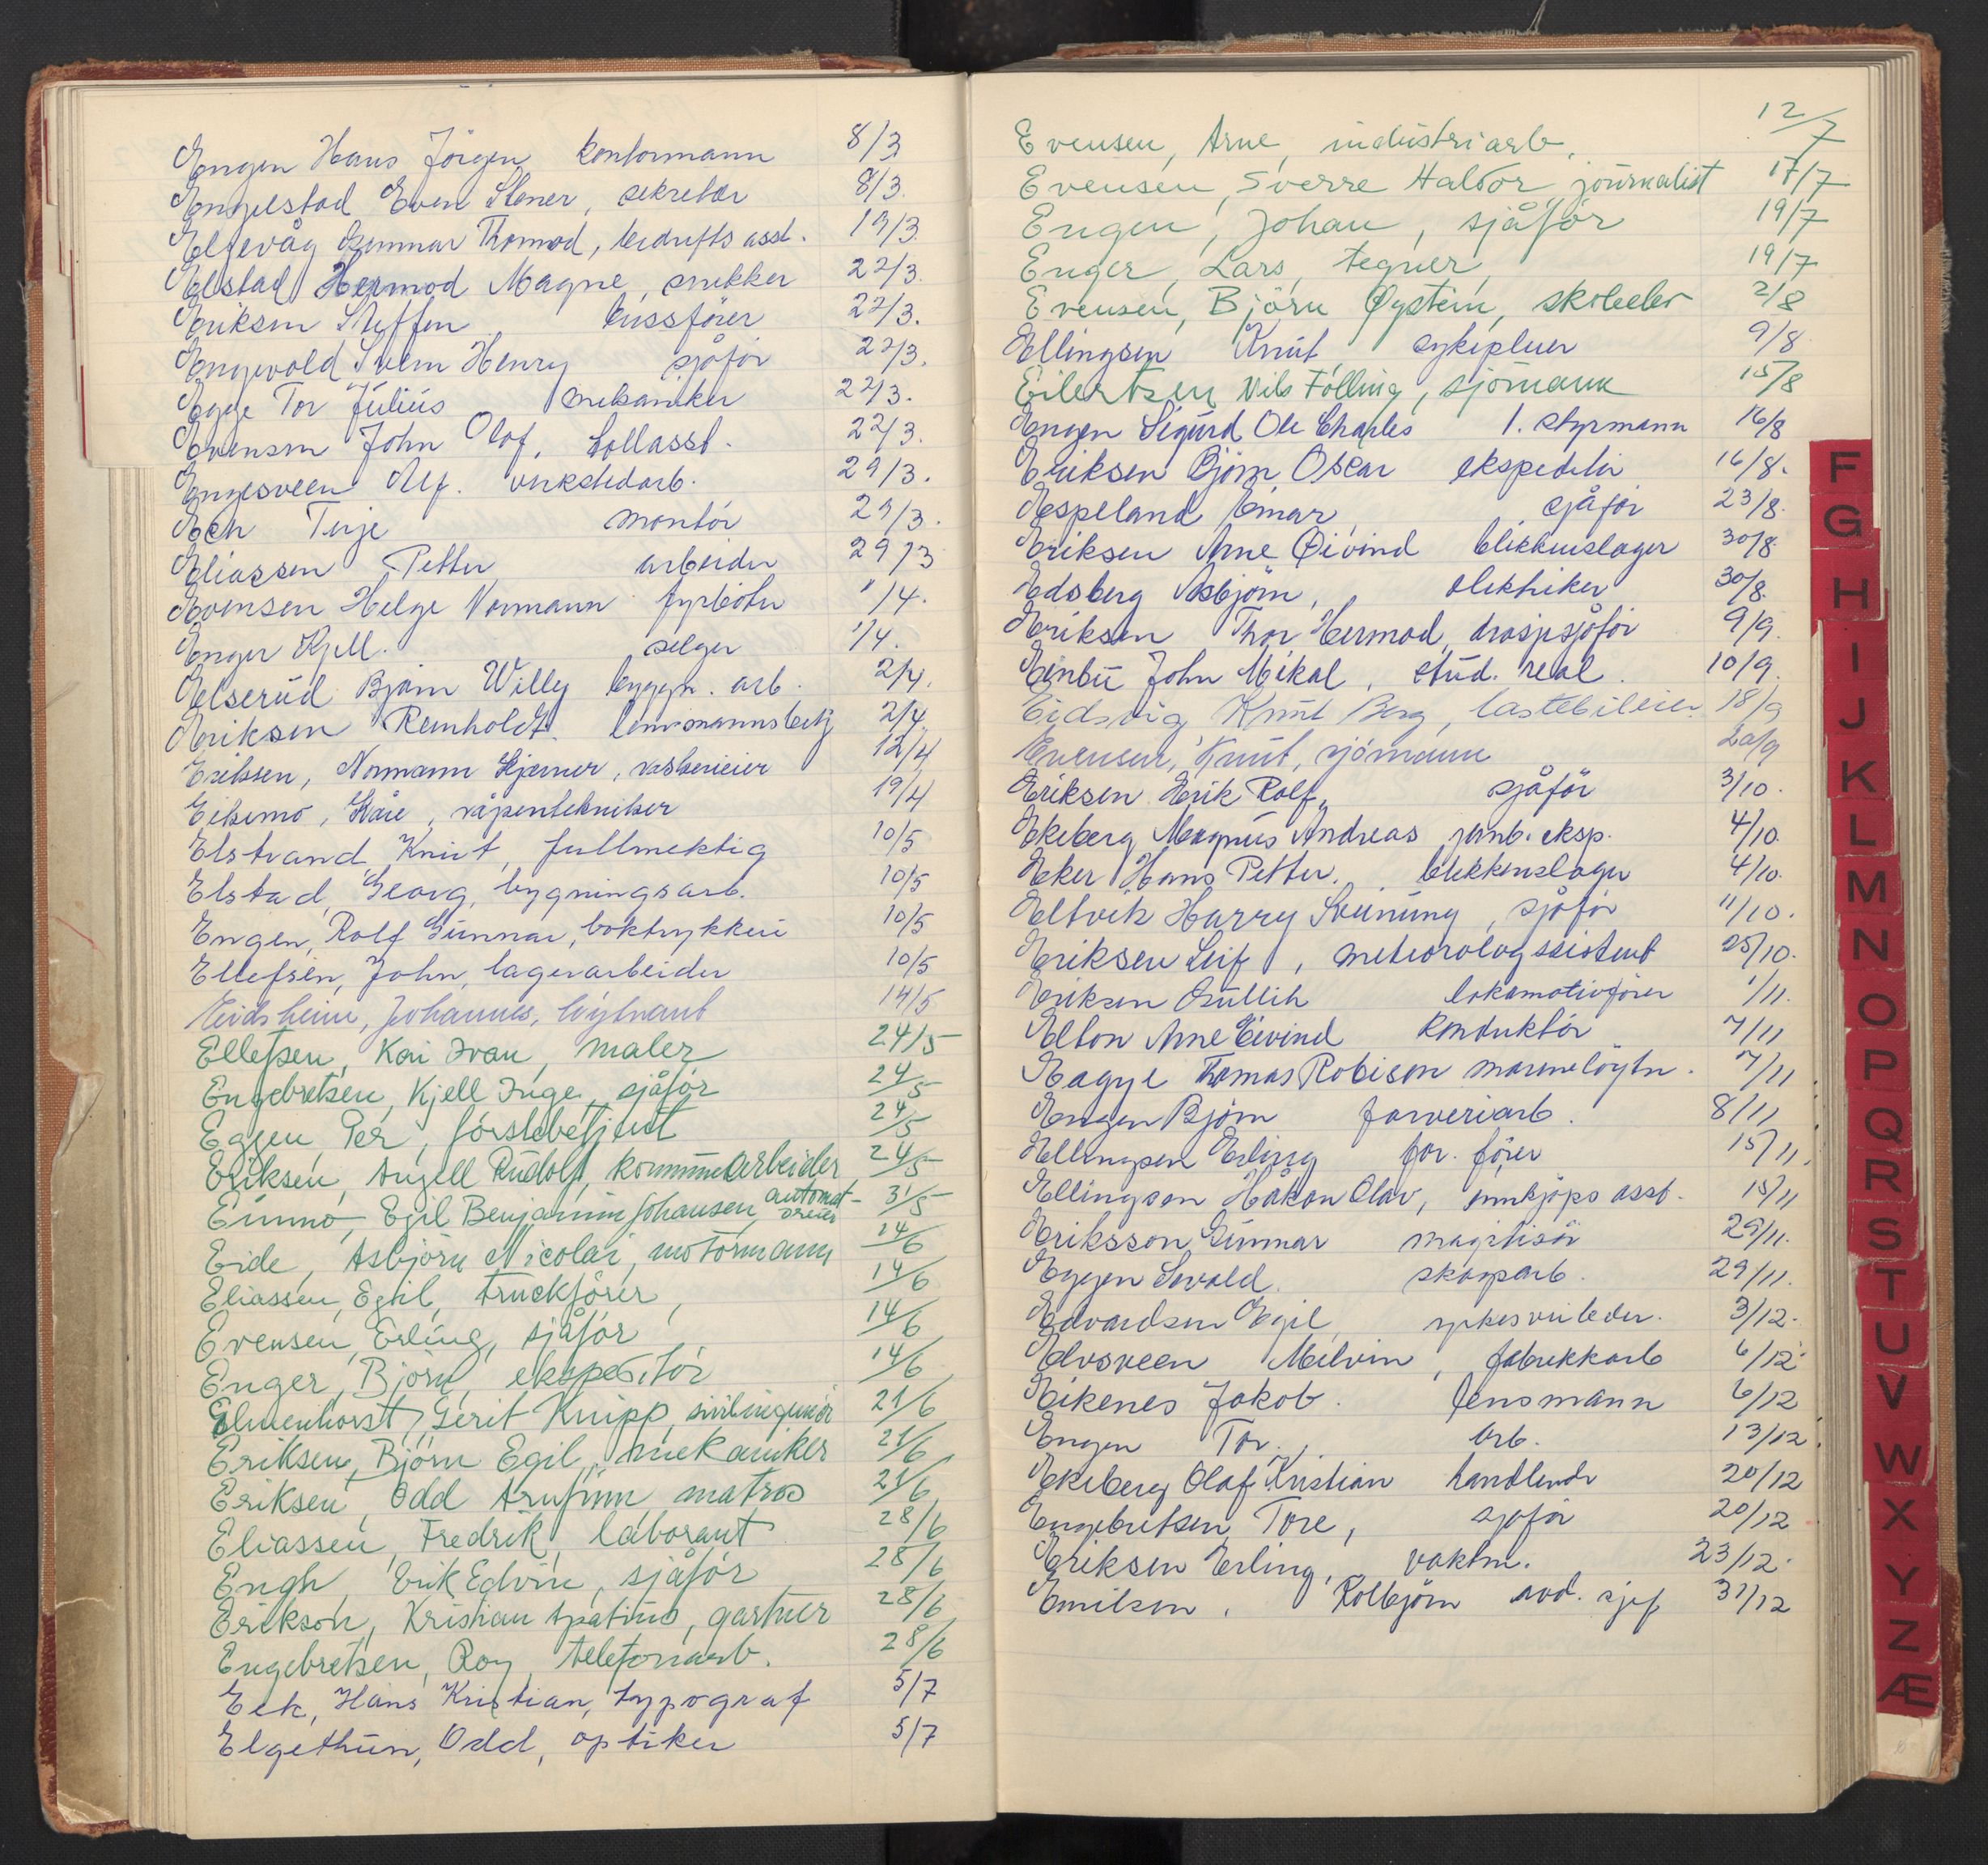 Engen Hans Jörgen kontormann 8/3
Engelstad Even Stener, sekretær 8/3.
Elgevåg Gunnar Thomod, bedrifts asst. 19/3.
Elstad Hermod Magne, snikker 22/3.
Eriksen Steffen bussförer 22/3.
Engevold Svein Henry sjåför 22/3.
Egge Tor Julius mekaniker 22/3.
Evensen John Olaf, tollasst. 22/3.
Engesveen Alf. verkstedarb. 29/3.
Een Terje montör 29/3.
Eliassen Petter arbeider 29/3
Evensen Helge Normann fyrböter 1/4.
Enger Kjell. selger 1/4.
Elserud Bjørn Willy byggn. arb. 2/4.
Eriksen Reinholdt. lensmannsbetj 2/4.
Eriksen, Normann Hjerner, vaskerieier 12/4
Eiksmo, Kåre, våpentekniker 19/4
Elstrand, Knut, fullmektig 10/5
Elstad, Georg, bygningsarb. 10/5
Engen, Rolf Gunnar, boktrykkeri 10/5
Ellefsen, John, lagerarbeider 10/5
Eidsheim, Johannes, löytnant 14/5
Ellefsen, Kai Ivan, maler 24/5
Engebretsen, Kjell Inge, sjåför 24/5
Eggen, Per, förstebetjent 24/5
Eriksen, Angell Rudolf, kommunearbeider 24/5
Einmo, Egil Benjamin Johansen, automat- 31/5
dreier
Eide, Asbjörn Nicolai, motormann 14/6
Eliassen, Egil, truckförer 14/6
Evensen, Erling, sjåför 14/6
Enger, Björn, ekspeditör 14/6
Elmenhorst, Gerit Knipp, sivilingeniör 21/6
Eriksen, Björn Egil, mekaniker 21/6
Eriksen, Odd Arnfinn matros 21/6
Eliassen, Fredrik, laborant 28/6
Engh, Erik Edvin, sjåför 28/6
Erikson, Kristian Spatino, gartner 28/6
Engebretsen, Roy, telefonarb. 28/6
Eek, Hans Kristian, typograf 5/7
Elgethun, Odd, optiker 5/7
Evensen, Arne, industriarb. 12/7
Evensen, Sverre Haldor, journalist 17/7
Engen, Johan, sjåför 19/7
Enger, Lars, tegner, 19/7
Evensen, Björn Øystein, skoleelev 2/8
Ellingsen Knut, sykepleier 9/8
Eilertsen, Nils Fölling, sjömann 15/8
Engen Sigurd Ole Charles 1. styrmann 16/8
Eriksen Björn Oscar ekspeditör 16/8.
Espeland Einar, sjåför 23/8.
Eriksen Arne Øivind blikkenslager 30/8
Edsberg Asbjörn, elektriker 30/8.
Eriksen Thor Hermod, drosjesjåför 9/9.
Einbu John Mikal, stud. real. 10/9.
Eidsvig, Knut Berg, lastebileier 18/9
Evensen, Knut, sjömann 20/9
Eriksen Erik Rolf, sjåför 3/10.
Ekeberg Magnus Andreas jernb. eksp. 4/10.
Eker Hans Petter. blikkenslager 4/10.
Eltvik Harry Sveinung, sjåför 11/10.
Eriksen Leif, meteorologssistent 25/10.
Eriksen Osullih lokomotivförer 1/11.
Elton Arne Eivind konduktör 7/11
Eagye Thomas Robison marinelöytn. 7/11
Engen Björn farveriarb. 8/11
Ellingsen Erling for. förer 15/11.
Ellingsen Håkon Olav, innkjöps asst. 15/11
Eriksson Gunnar magistör 29/11.
Eggen Sevald. skogsarb. 29/11.
Edvardsen Egil, yrkesveileder. 3/12.
Elvsveen Melvin, fabrikkarb 6/12.
Eikenes Jakob. lensmann 6/12
Engen Tor, arb. 13/12.
Ekeberg Olaf Kristian handlende 20/12
Engebretsen Tore, sjåför 20/12
Eriksen Erling, vaktm. 23/12.
Emilsen, Kolbjörn avd. sjef 31/12
F
G
H
I
J
K
L
M
N
O
P
Q
R
S
T
U
V
W
X
Y
Z
Æ